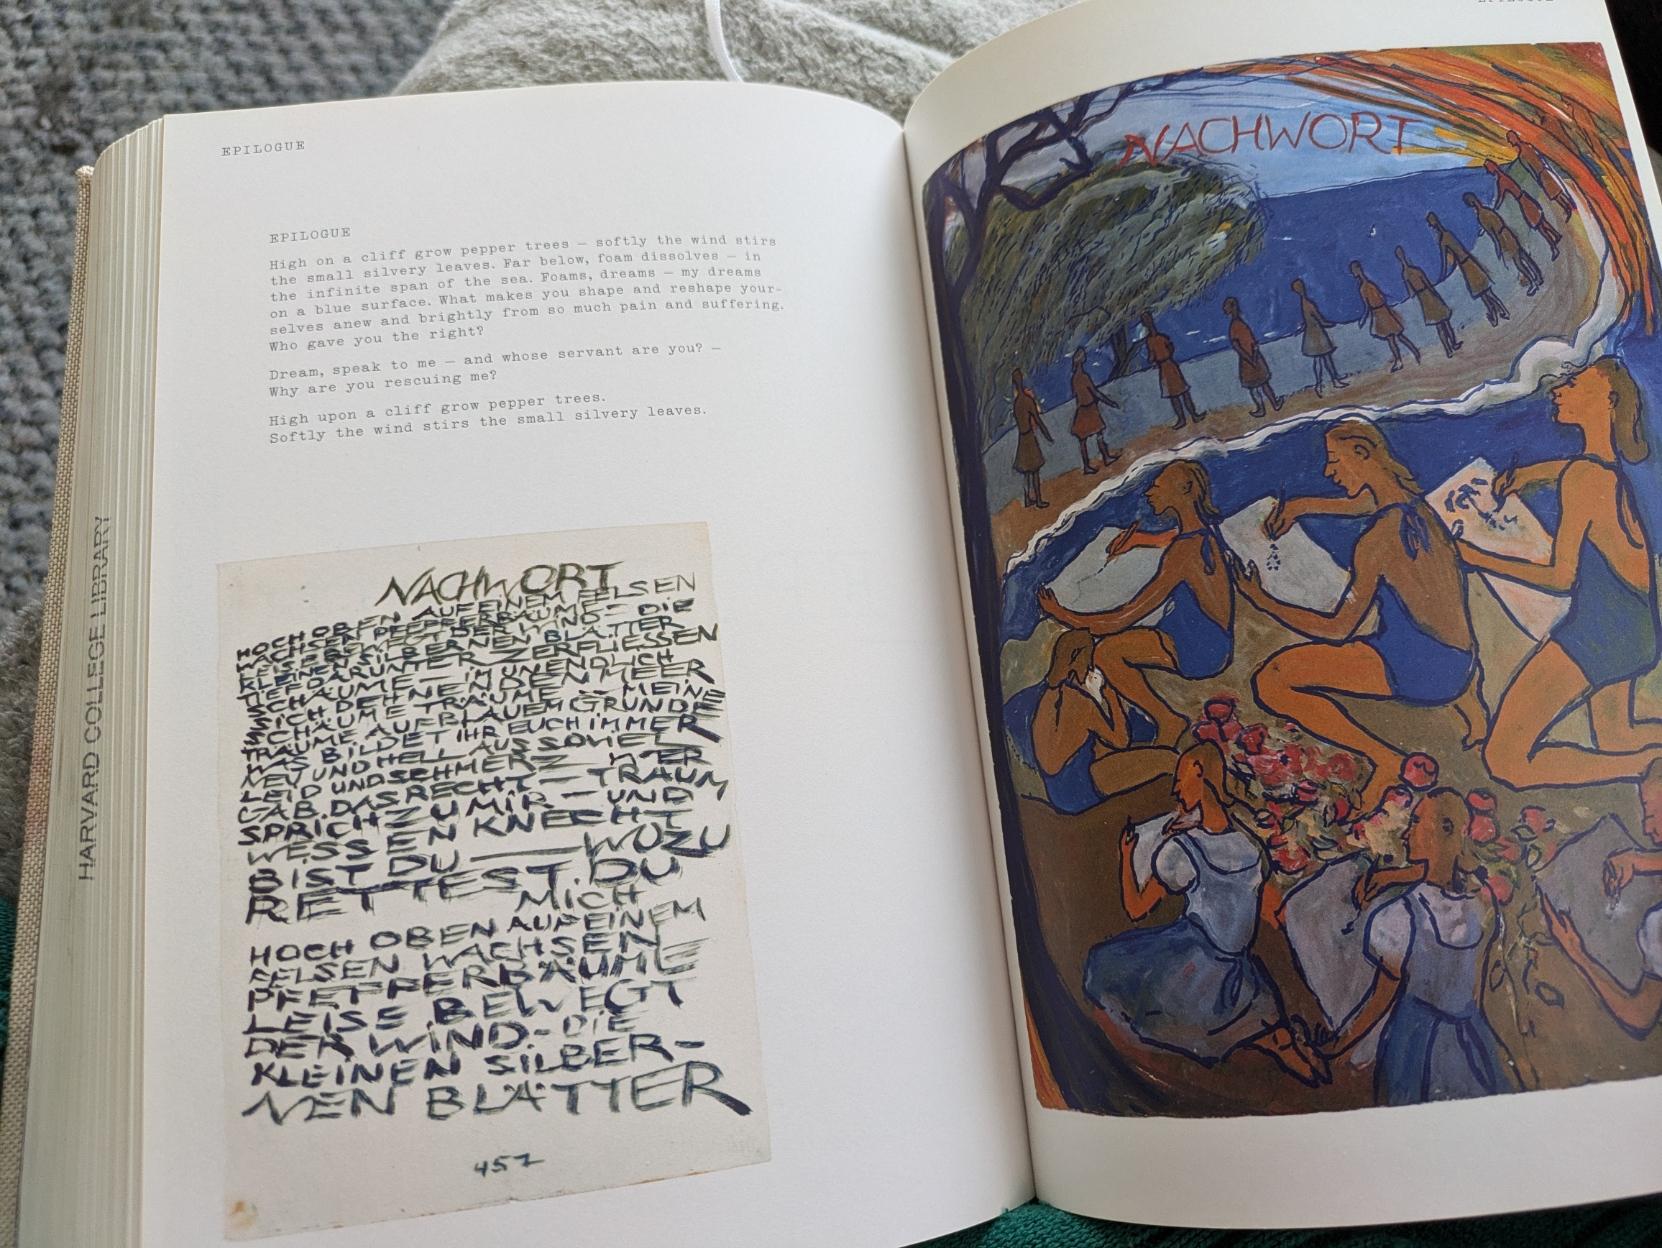 EPILOGUE
EPILOGUE
High on a cliff grow pepper trees — softly the wind stirs
the small silvery leaves. Far below, foam dissolves — in
the infinite span of the sea. Foams, dreams — my dreams
on a blue surface. What makes you shape and reshape your-
selves anew and brightly from so much pain and suffering.
Who gave you the right?
Dream, speak to me — and whose servant are you? —
Why are you rescuing me?
High upon a cliff grow pepper trees.
Softly the wind stirs the small silvery leaves.
NACHWORT
HOCH OBEN AUF EINEM FELSEN
WACHSEN PFEFFERBÄUME - DIE
LEISE BEWEGT DER WIND
KLEINEN SILBERNEN BLÄTTER
TIEF DARUNTER ZERFLIESSEN
SCHÄUME — IM UNENDLICH
SICH DEHNENDEN MEER
SCHÄUME TRÄUME — MEINE
TRÄUME AUF BLAUEM GRUNDE
WAS BILDET IHR EUCH IMMER
NEU UND HELL AUS SOVIEL
LEID UND SCHMERZ — WER
GAB DAS RECHT — TRAUM
SPRICH ZU MIR. — UND
WESSEN KNECHT
BIST DU — WOZU
RETTEST DU
MICH
HOCH OBEN AUF EINEM
FELSEN WACHSEN
PFEFFERBÄUME
LEISE BEWEGT
DER WIND - DIE
KLEINEN SILBER-
NEN BLÄTTER
457
HARVARD COLLEGE LIBRARY
EPILOGUE
NACHWORT